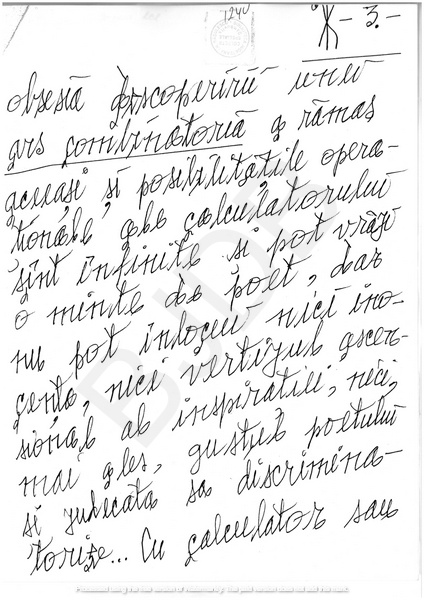 1240
Ж - 3. -
obsesia descoperirii unei
ars combinatoria a rămas
aceeași și posibilitățile opera-
ționale ale calculatorului
sînt infinite și pot vrăji
o minte de poet, dar
nu pot înlocui nici ino-
cența, nici vertijul ascen-
sional al inspirației, nici,
mai ales, gustul poetului
și judecata sa discrimina-
torie... Cu calculator sau
BJDA